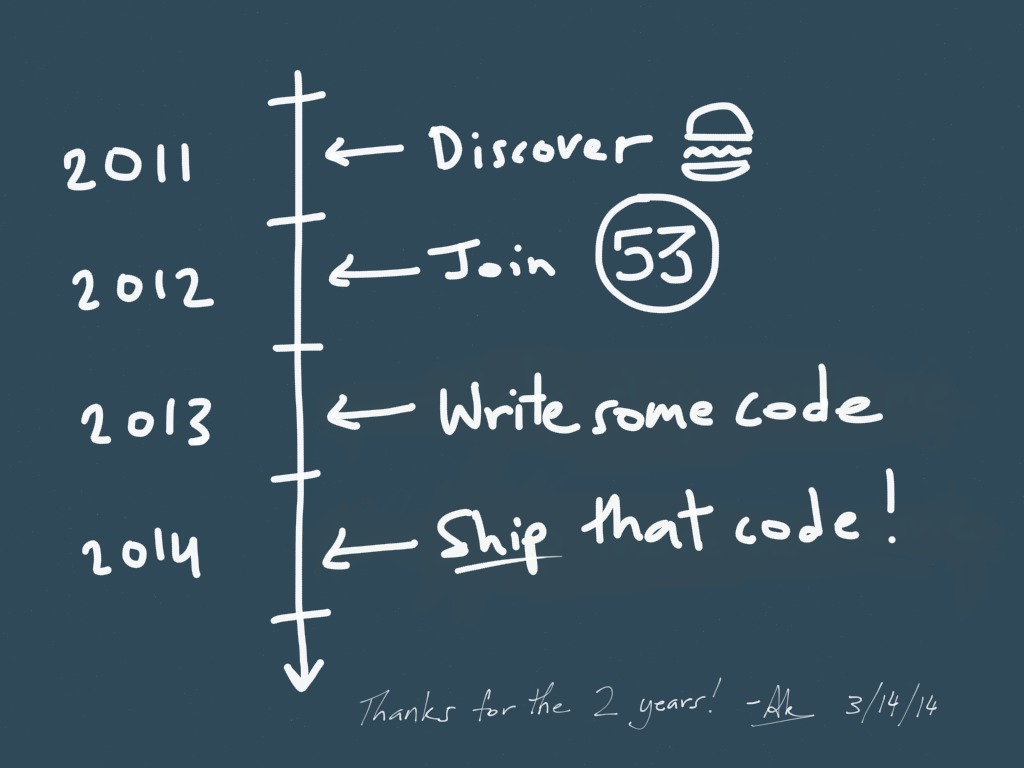 2011 ← Discover
2012 ← Join 53
2013 ← Write some code
2014 ← Ship that code!
Thanks for the 2 years! - 3/14/14